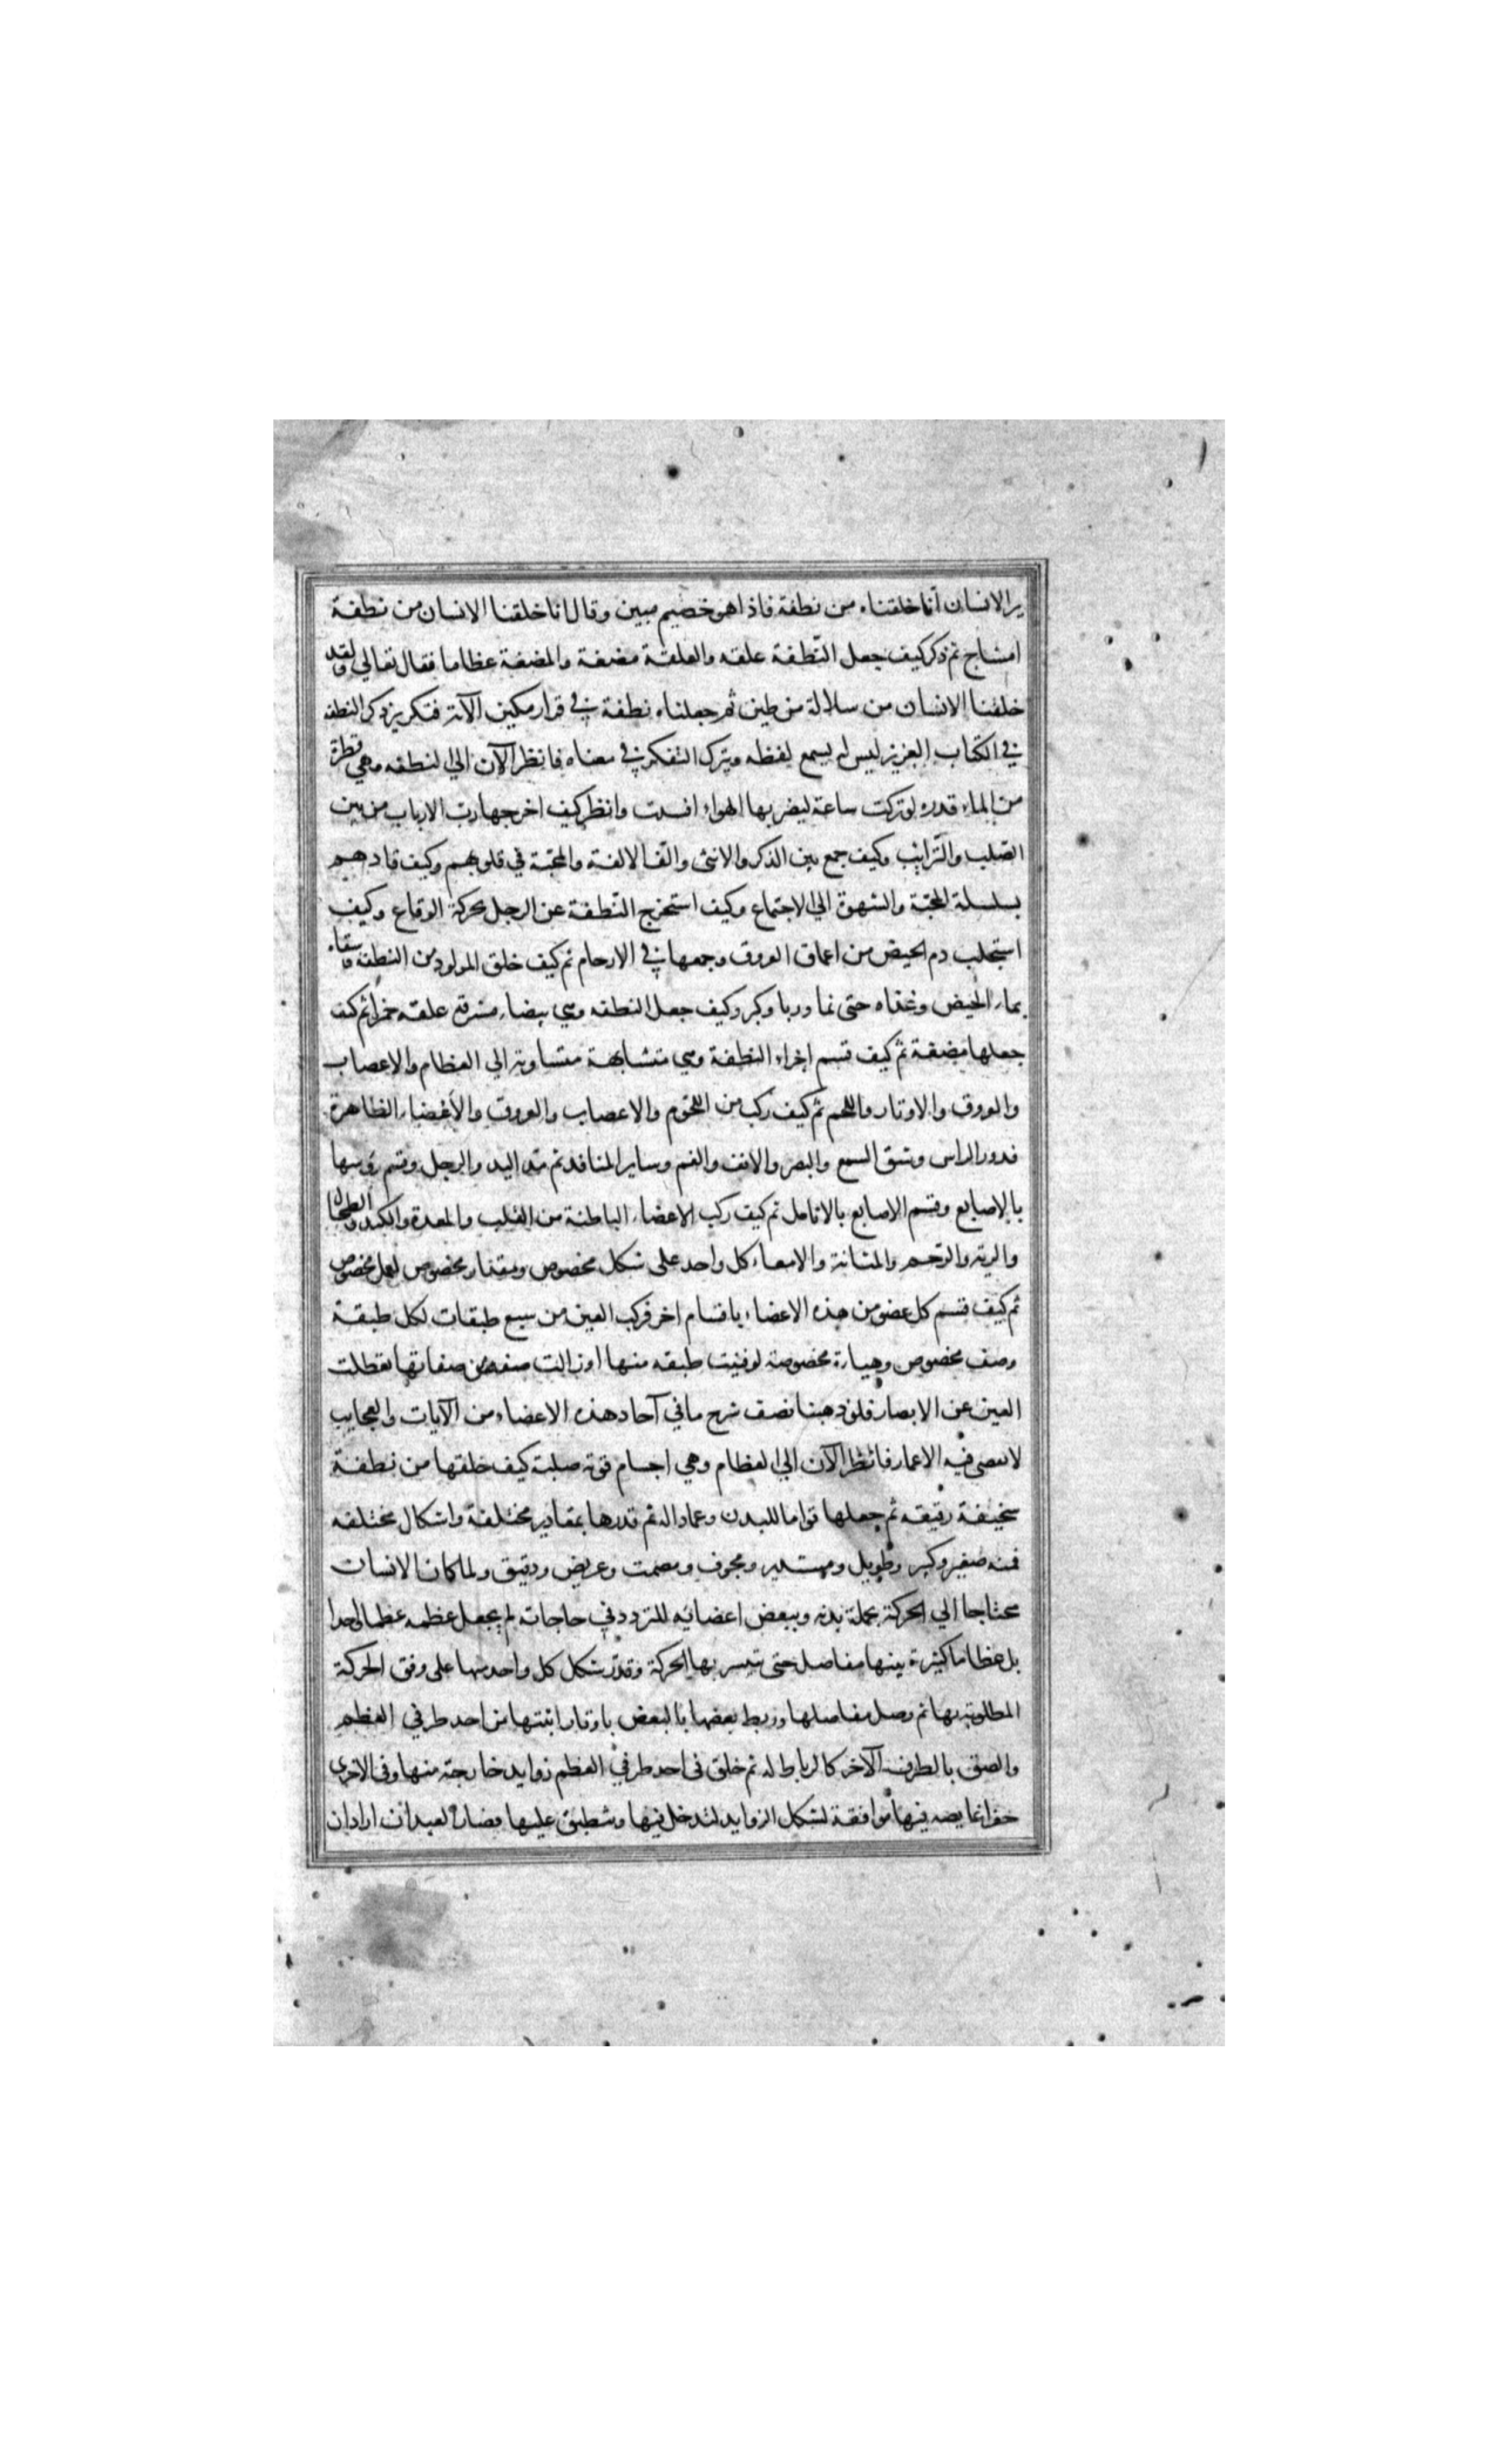 ير الانسان أنا خلقناه من نطفة فاذا هو خصيم مبين وقال انا خلقنا الانسان من نطفة
امشاج ثم ذكر كيف جعل النّطفة علقه والعلقة مضغة والمضغة عظاما فقال تعالى ولقد
خلقنا الانسان من سلالة من طين ثم جعلناه نطفة في قرار مكين الآية فتكرير ذكر النطفه
في الكتاب العزيز ليس لم يسمع لفظه ويترك التفكر في معناه فانظر الآن الي النطفه وهي قطرة
من الماء قدره لو تركت ساعة ليضر بها الهواء افسدت وانظر كيف اخرجها رب الارباب من بين
الصّلب والتّرائب وكيف جمع بين الذكر والانثى والّف الالفة والمحبّة في قلوبهم وكيف قادهم
بسلسلة المحبّة والشهوة الي الاجتماع وكيف استخرج النّطفة عن الرجل بحركة الوقاع وكيف
استجلب دم الحيض من اعماق العروق وجمعها في الارحام ثم كيف خلق المولود من النطفة وسقاه
بماء الحيض وغذاه حتى نما وربا وكبر وكيف جعل النطفه وهي بيضاء مشرقة علقه حمراء ثم كيف
جعلها مضغة ثم كيف قسم اجزاء النطفة وهي متشابهة متساوية الي العظام والاعصاب
والعروق والاوتار واللحم ثم كيف ركب من اللحوم والاعصاب والعروق والأعضاء الظاهرة
فدور الراس وشق السمع والبصر والانف والفم وساير المنافد ثم مدّ اليد والرجل وقسم رؤسها
بالاصابع وقسم الاصابع بالانامل ثم كيف ركب الاعضاء الباطنة من القلب والمعدة والكبد والطحال
والرية والرّحم والمثانة والامعاء كل واحد على شكل مخصوص ومقدار مخصوص لعمل مخصوص
ثم كيف قسم كل عضو من هذه الاعضاء باقسام اخر فركب العين من سبع طبقات لكل طبقة
وصف مخصوص وهياءة مخصوصة لو فنيت طبقه منها او زالت صفه من صفاتها تعطلت
العين عن الابصار فلو ذهبنا نصف شرح ما في آحاد هذه الاعضاء من الآيات والعجايب
لانقضى فيه الاعمار فانظر الآن الي العظام وهي اجسام قوية صلبة كيف خلقها من نطفة
سخيفة رقيقه ثم جعلها قواما للبدن وعماداله ثم قدرها بمقادير مختلفة واشكال مختلفه
فمنه صغير وكبير وطويل ومستدير ومجوف ومصمت وعريض ودقيق ولما كان الانسان
محتاجا الي الحركة بجملة بدنه وببعض اعضائه للتردد في حاجاته لم يجعل عظمه عظما واحدا
بل عظاما كثيرة بينها مفاصل حتى تيسر بها الحركة وقدّر شكل كل واحد منها على وفق الحركة
المطلوبة بها ثم وصل مفاصلها وربط بعضها بالبعض باوتار انبتها من احد طرفي العظم
والصق بالطرف الآخر كالرباط له ثم خلق في احد طرفي العظم زوايد خارجة منها وفي الاخرى
حفرا غايصه فيها موافقة لشكل الزوايد لتدخل فيها وتنطبق عليها فصار العبد ان اراد ان